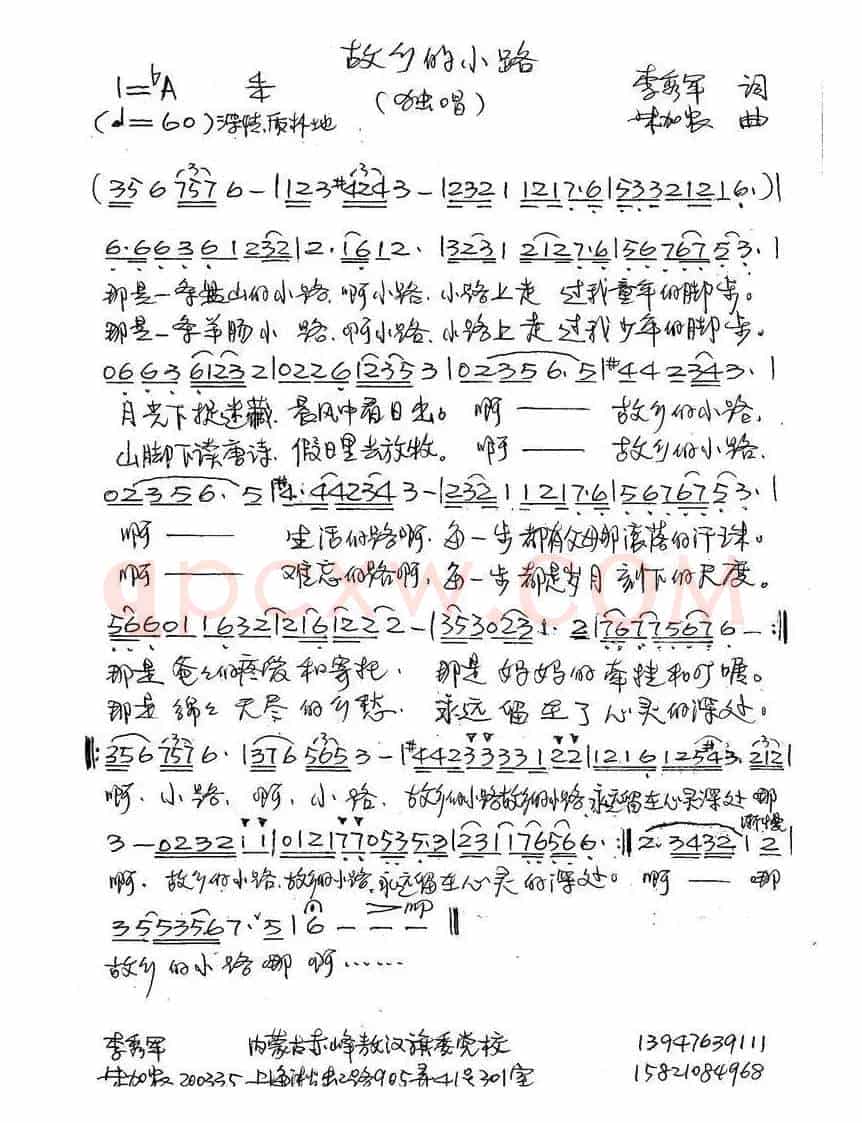 故乡的小路
1=♭A 4/4 (独唱) 李秀军 词
(♩=60)深情.质朴地 加农 曲
(356 7576-|123#4243-|2321 1217·6|5332 1216·)|
6·66361232|2·1612·|3231 2127·6|567675 3·|
那是一条盘山的小路.啊小路.小路上走 过我童年的脚步。
那是一条羊肠小 路.啊小路.小路上走过我少年的脚步。
066361232|0226 12353|02356·5|#4 42343·|
月光下捉迷藏.晨风中看日出。 啊—— 故乡的小路,
山脚下读唐诗.假日里去放牧。 啊—— 故乡的小路.
02356·5|#4·442343-|2321 1217·6|567675 3·|
啊—— 生活的路啊.每一步都有父母那滚落的汗珠。
啊—— 难忘的路啊,每一步都是岁月刻下的尺度。
566011632|21612 2 2-|353023 1· 2|767756 76-:‖
那是爸爸的疼爱和寄托. 那是妈妈的牵挂和叮嘱。
那是绵绵无尽的乡愁. 永远留在了心灵的深处。
‖:3567576·|3765653-|#442333312 2|1216 125#43· 212|
啊.小路.啊,小路.故乡的小路故乡的小路.永远留在心灵深处 哪
渐慢
3-023211|0121770535·3|2311765 66·:‖2·3432 12|
啊.故乡的小路.故乡的小路.永远留在心灵的深处。 啊—— 哪
35535 67·5|6 - - -‖
故乡的小路哪 啊……
李秀军 内蒙古赤峰敖汉旗委党校 13947639111
加农 200335 上海 905弄41号301室 15821084968
qpcxw.com